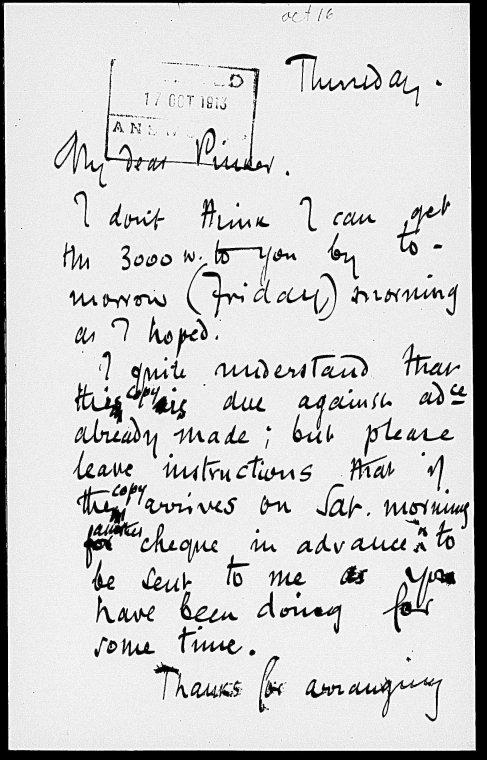 oct 16
Thursday.
D
17 OCT 1913
AN
My dear Pinker.
I don't think I can get
the 3000 w. to you by to-
morrow (Friday) morning
as I hoped.
I quite understand that
this copy is due against adce
already made; but please
leave instructions that if
the copy arrives on Sat. morning
another cheque in advance is to
be sent to me as you
have been doing for
some time.
Thanks for arranging